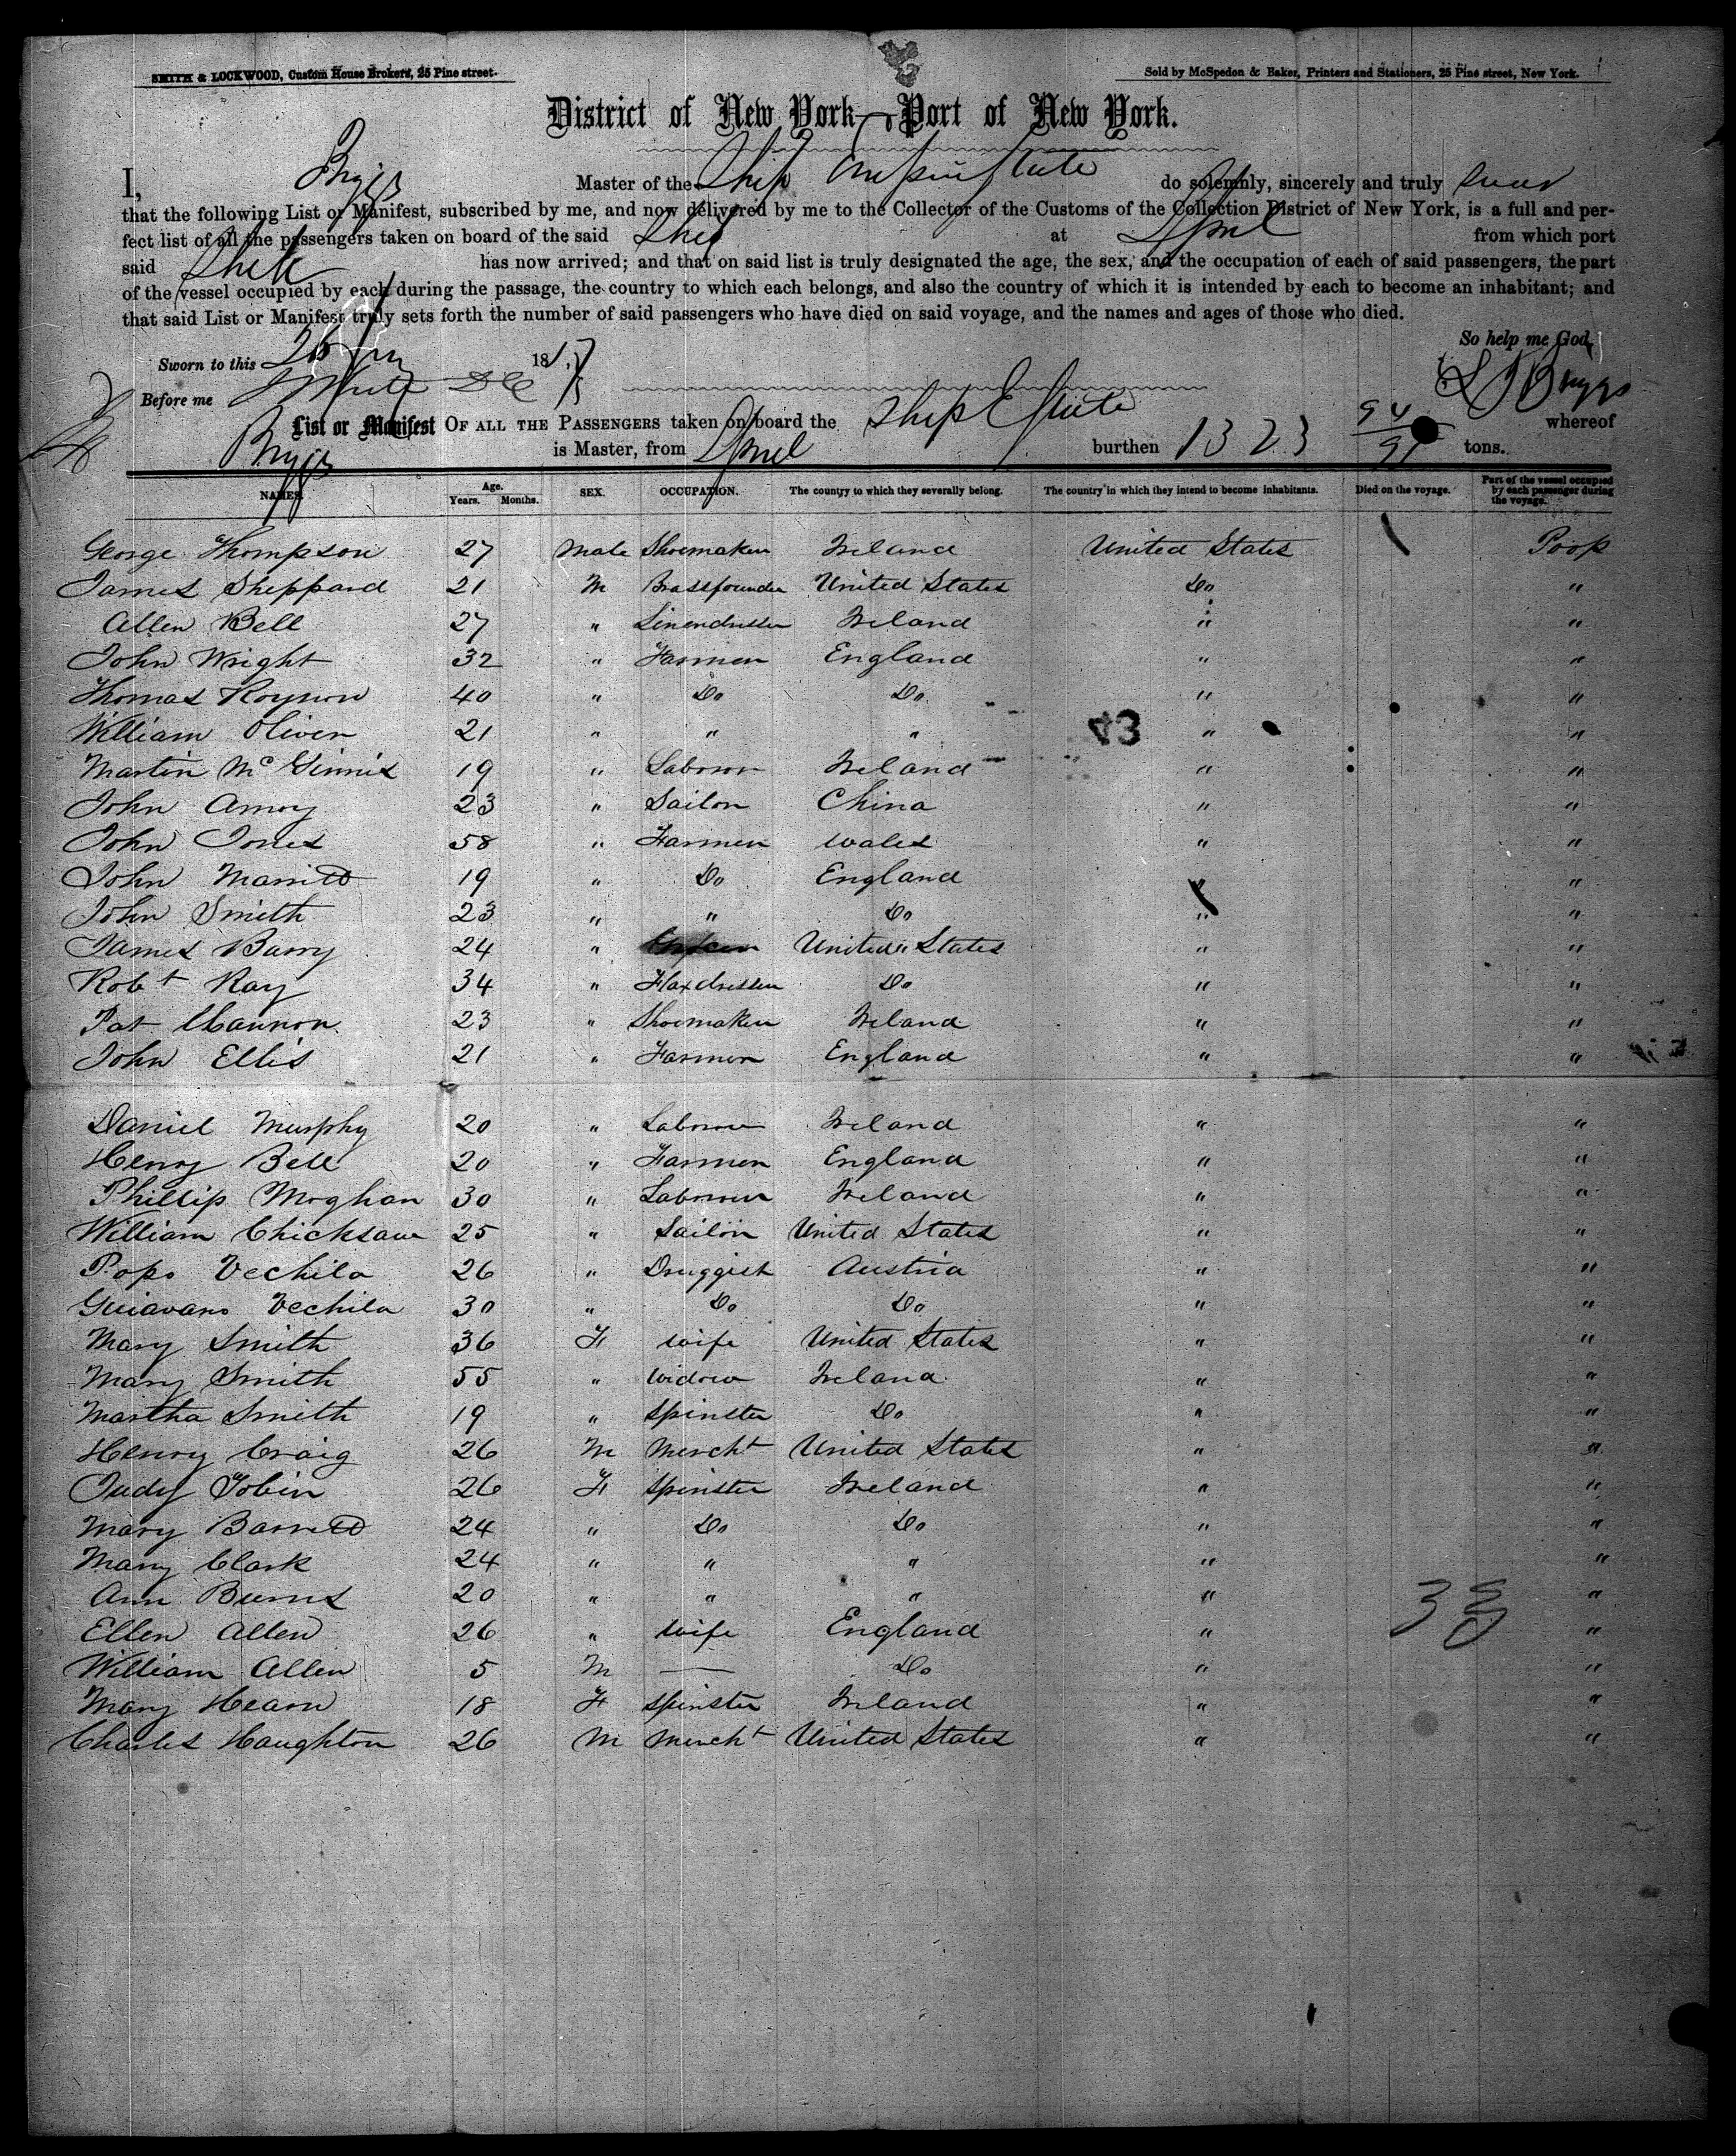 SMITH & LOCKWOOD, Custom House Brokers, 25 Pine street.
Sold by McSpedon & Baker, Printers and Stationers, 25 Pine street, New York.
District of New York—Port of New York.
I, Briggs Master of the Ship Empire State do solemnly, sincerely and truly swear
that the following List or Manifest, subscribed by me, and now delivered by me to the Collector of the Customs of the Collection District of New York, is a full and per-
fect list of all the passengers taken on board of the said Ship at Lpool from which port
said Ship has now arrived; and that on said list is truly designated the age, the sex, and the occupation of each of said passengers, the part
of the vessel occupied by each during the passage, the country to which each belongs, and also the country of which it is intended by each to become an inhabitant; and
that said List or Manifest truly sets forth the number of said passengers who have died on said voyage, and the names and ages of those who died.
So help me God,
Sworn to this 26 1857
Before me Briggs
List or Manifest OF ALL THE PASSENGERS taken on board the Ship E State whereof
Briggs is Master, from Lpool burthen 1323 94/95 tons.
NAMES. Age. Years. Months. SEX. OCCUPATION. The country to which they severally belong. The country in which they intend to become inhabitants. Died on the voyage. Part of the vessel occupied by each passenger during the voyage.
George Thompson 27 Male Shoemaker Ireland United States Poop
James Sheppard 21 M Brassfounder United States Do "
Allen Bell 27 " Linendresser Ireland " "
John Wright 32 " Farmer England " "
Thomas Roynon 40 " Do Do " "
William Oliver 21 " " " " "
43
Martin McGinnis 19 " Laborer Ireland " "
John Amoy 23 " Sailor China " "
John Jones 58 " Farmer Wales " "
John Marritt 19 " Do England " "
John Smith 23 " " Do " "
James Barry 24 " United States " "
Robt Ray 34 " Flaxdresser Do " "
Pat Channon 23 " Shoemaker Ireland " "
John Ellis 21 " Farmer England " "
Daniel Murphy 20 " Laborer Ireland " "
Henry Bell 20 " Farmer England " "
Phillip Moghan 30 " Laborer Ireland " "
William Chicksaw 25 " Sailor United States " "
Popo Vechila 26 " Druggist Austria " "
Guiavano Vechila 30 " Do Do " "
Mary Smith 36 F Wife United States " "
Mary Smith 55 " Widow Ireland " "
Martha Smith 19 " Spinster Do " "
Henry Craig 26 M Mercht United States " "
Judy Tobin 26 F Spinster Ireland " "
Mary Barrett 24 " Do Do " "
Mary Clark 24 " " " " "
Ann Burns 20 " " " " "
Ellen Allen 26 " Wife England " "
William Allen 5 M — Do " "
Mary Hearn 18 F Spinster Ireland " "
Charles Haughton 26 M Mercht United States " "